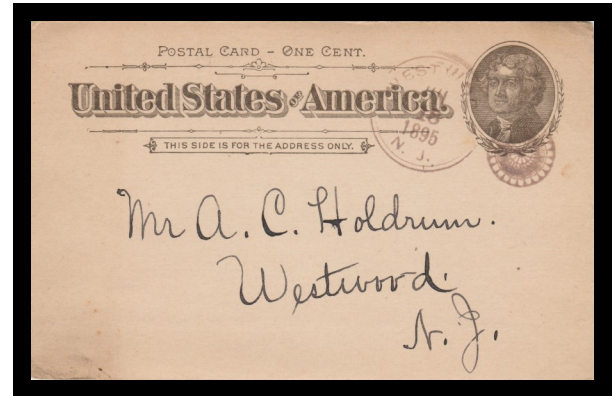 POSTAL CARD – ONE CENT.
United States of America.
THIS SIDE IS FOR THE ADDRESS ONLY.
18
1895
N. J.
Mr A. C. Holdrum.
Westwood.
N. J.